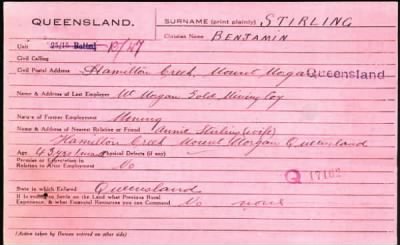 QUEENSLAND. SURNAME (print plainly) STIRLING
Christian Name BENJAMIN
Unit 25/15 Battn R/47
Civil Calling
Civil Postal Address Hamilton Creek, Mount Morgan Queensland
Name & Address of Last Employer Mt Morgan Gold Mining Coy
Nature of Former Employment Mining
Name & Address of Nearest Relative or Friend Annie Stirling (wife)
Hamilton Creek Mount Morgan Queensland
Age 43 yrs Physical Defects (if any)
Promise or Obligation in
Relation to After Employment No
State in which Enlisted Queensland
If to settle on the Land what Previous Rural
Experience, & what Financial Resources you can Command No none
Q 17162
(Action taken by Bureau entered on other side)